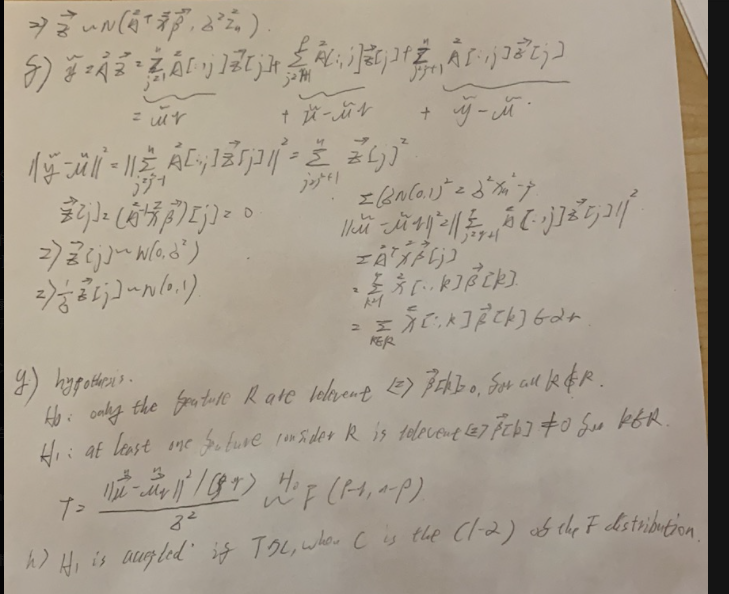 => z⃗ ~ N(A^T X β⃗, σ² I_n).
f) y = A z⃗ = Σ A[:,j] z⃗[j] + Σ A[:,j] z⃗[j] + Σ A[:,j] z⃗[j]
= μ_r + μ - μ_r + y - μ
||y - μ||² = ||Σ A[:,j] z⃗[j]||² = Σ z⃗[j]²
z⃗[j] = (A^T X β⃗)[j] = 0
=> z⃗[j] ~ N(0, σ²)
=> 1/σ z⃗[j] ~ N(0,1)
||μ - μ_r||² = ||Σ A[:,j] z⃗[j]||²
= A^T X β⃗[j]
= Σ X[:,k] β⃗[k]
= Σ X[:,k] β⃗[k]
g) hypothesis.
H₀: only the feature R are relevent <=> β⃗[k]=0, for all k∉R.
H₁: at least one feature consider R is relevent <=> β⃗[k] ≠0 for k∉R.
T = ||μ - μ_r||² / (p-r) / σ² ~ H₀ F(p-r, n-p)
h) H₁ is accepted if T>c, when c is the (1-α) of the F distribution.